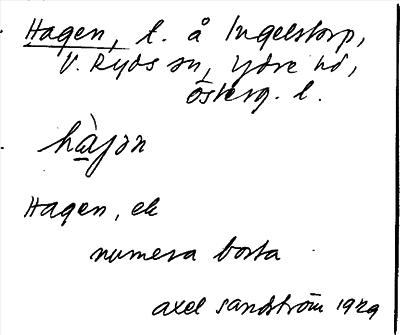 Hagen, l. å Ingelstorp,
V. Ryds sn, Ydre hd,
Österg. l.
hàgən
Hagen, ek
numera borta
axel sandström 1929